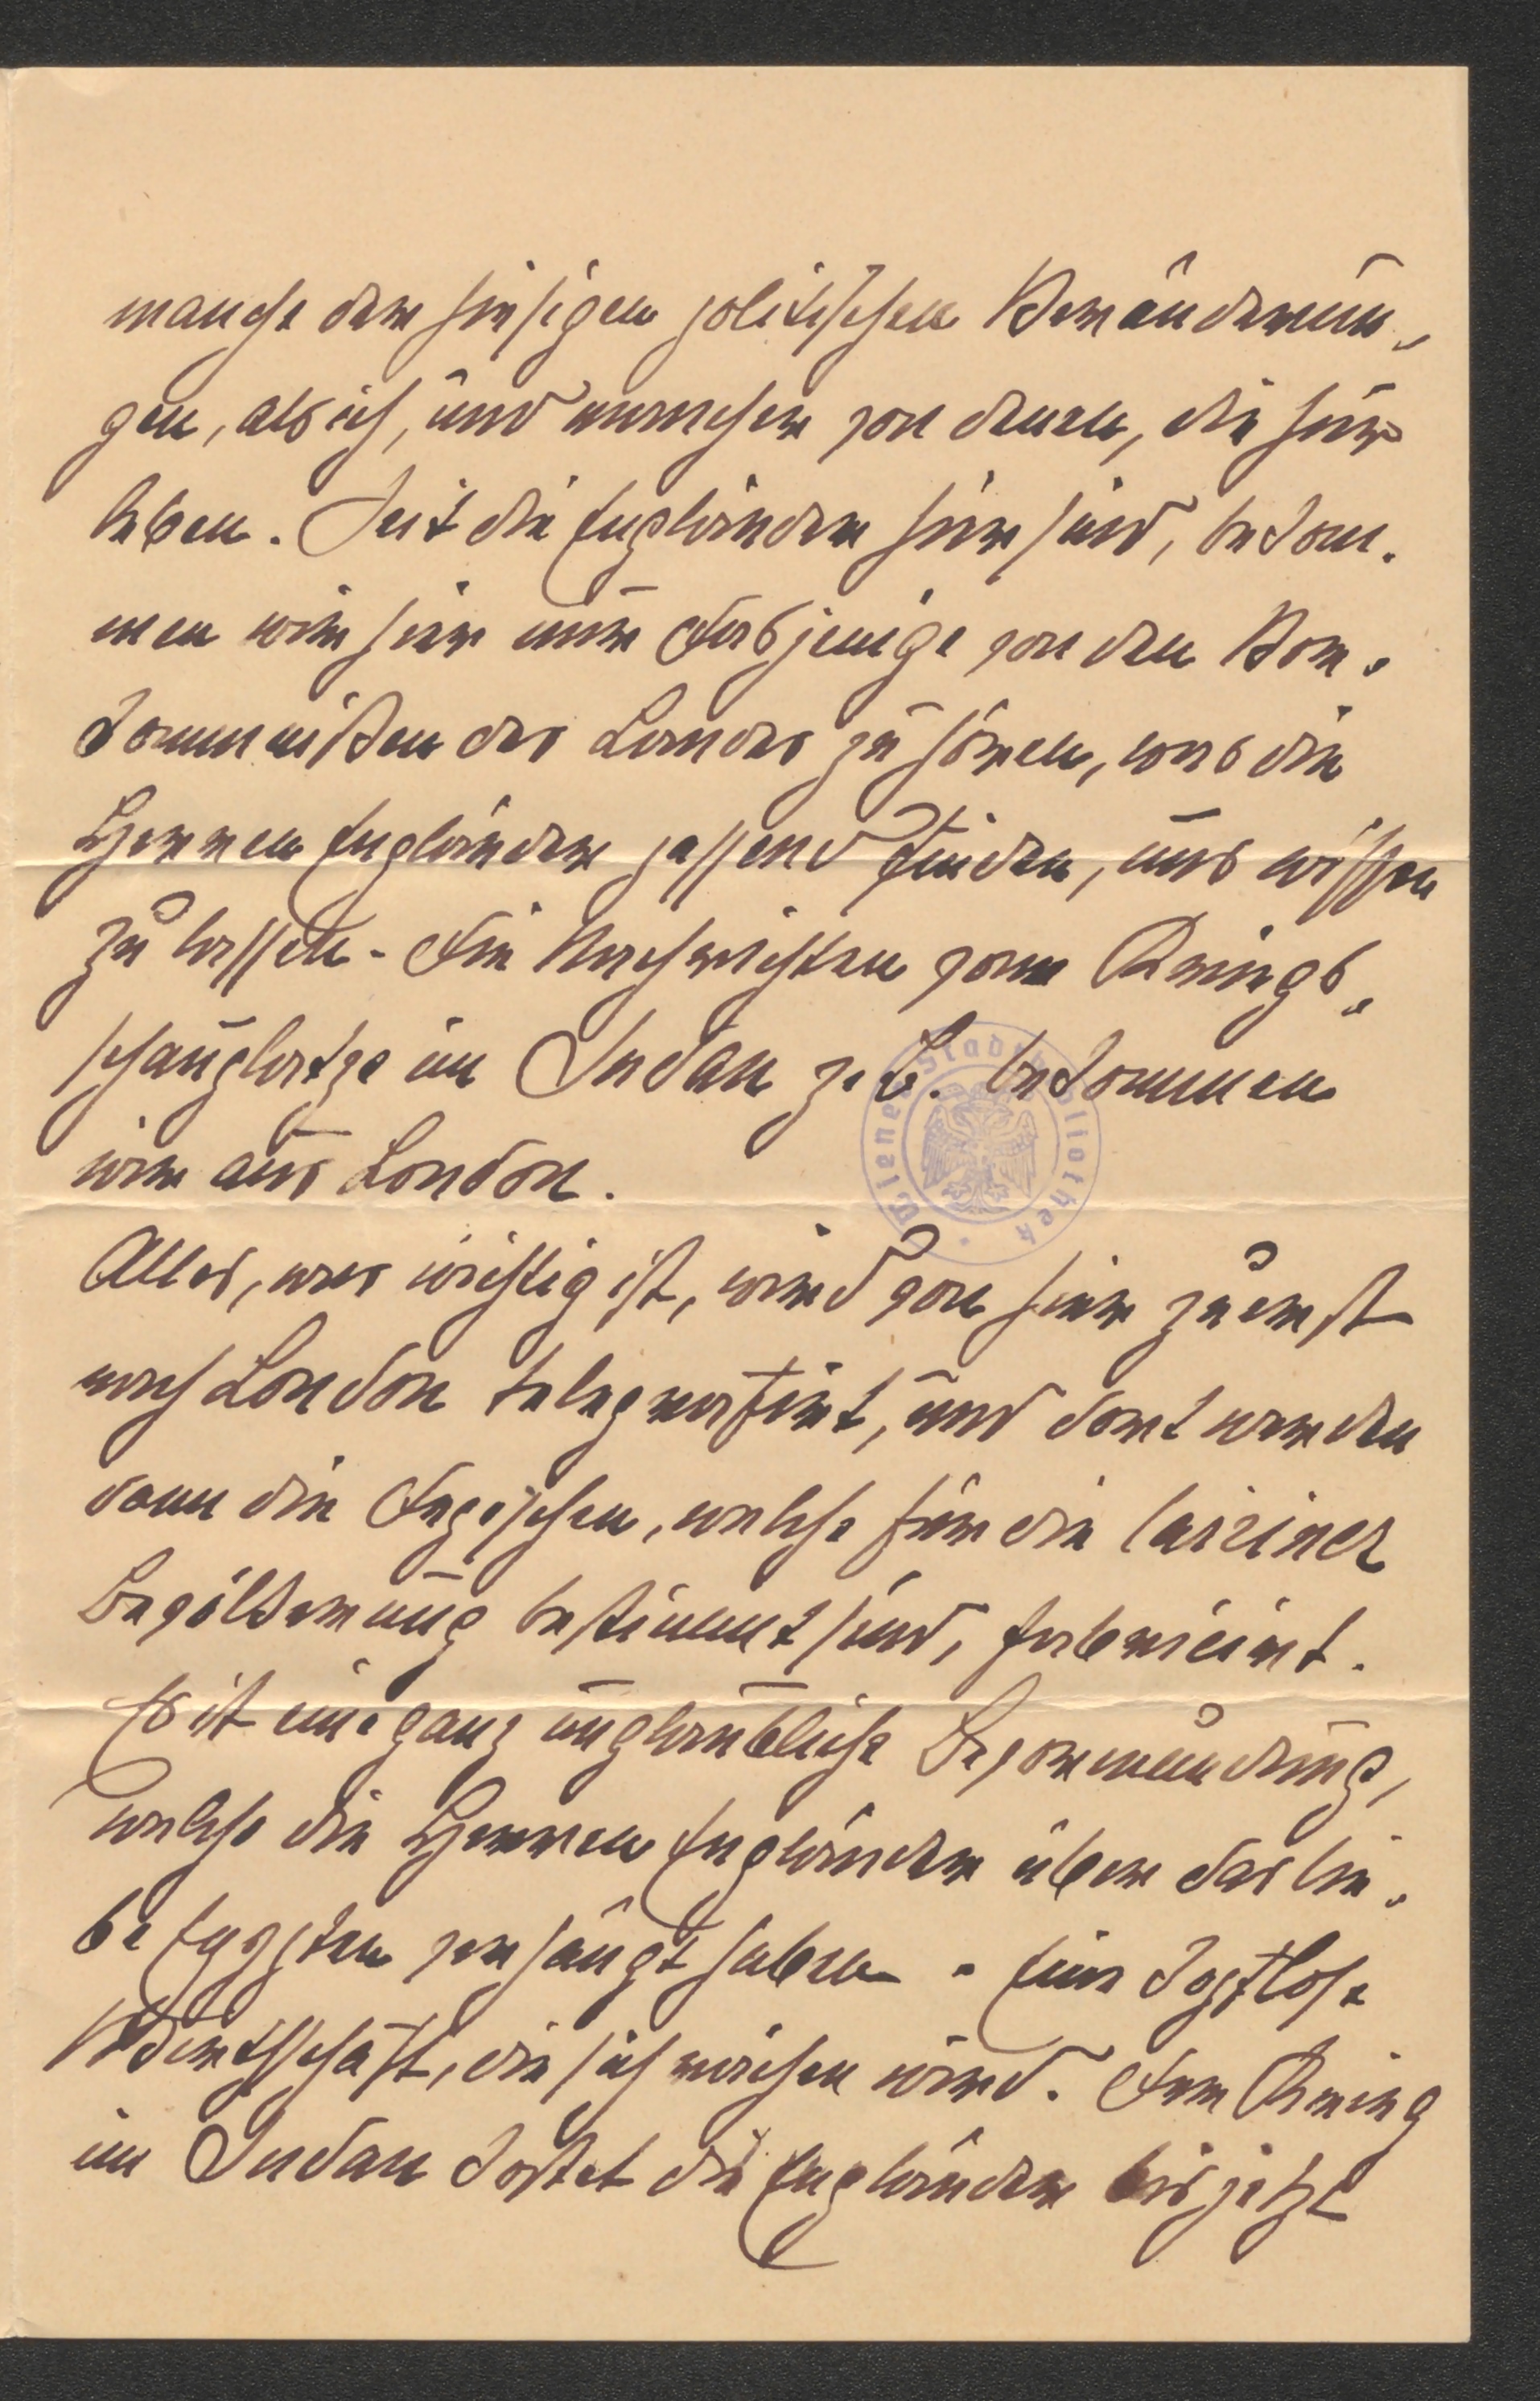 manche der hiesigen politischen Veränderun-
gen, als ich, und mancher von denen, die hier
leben. Seit die Engländer hier sind, bekom-
men wir hier nur dasjenige von den Vor-
kommnißen des Landes zu hören, was die
Herren Engländer passend finden, uns wissen
zu lassen - die Nachrichten vom Kriegs-
schauplatze im Sudan z. B. bekommen
wir aus London.
Alles, was wichtig ist, wird von hier zuerst
nach London telegrafirt, und dort werden
dann die Depeschen, welche für die Cairiner
Bevölkerung bestimmt sind, fabricirt.
Es ist eine ganz unglaubliche Bevormundung,
welche die Herren Engländer über das lie-
be Egypten verhängt haben - eine kopflose
Wirthschaft, die sich rächen wird. Der Krieg
im Sudan kostet die Engländer bis jetzt
Wiener Stadtbibliothek